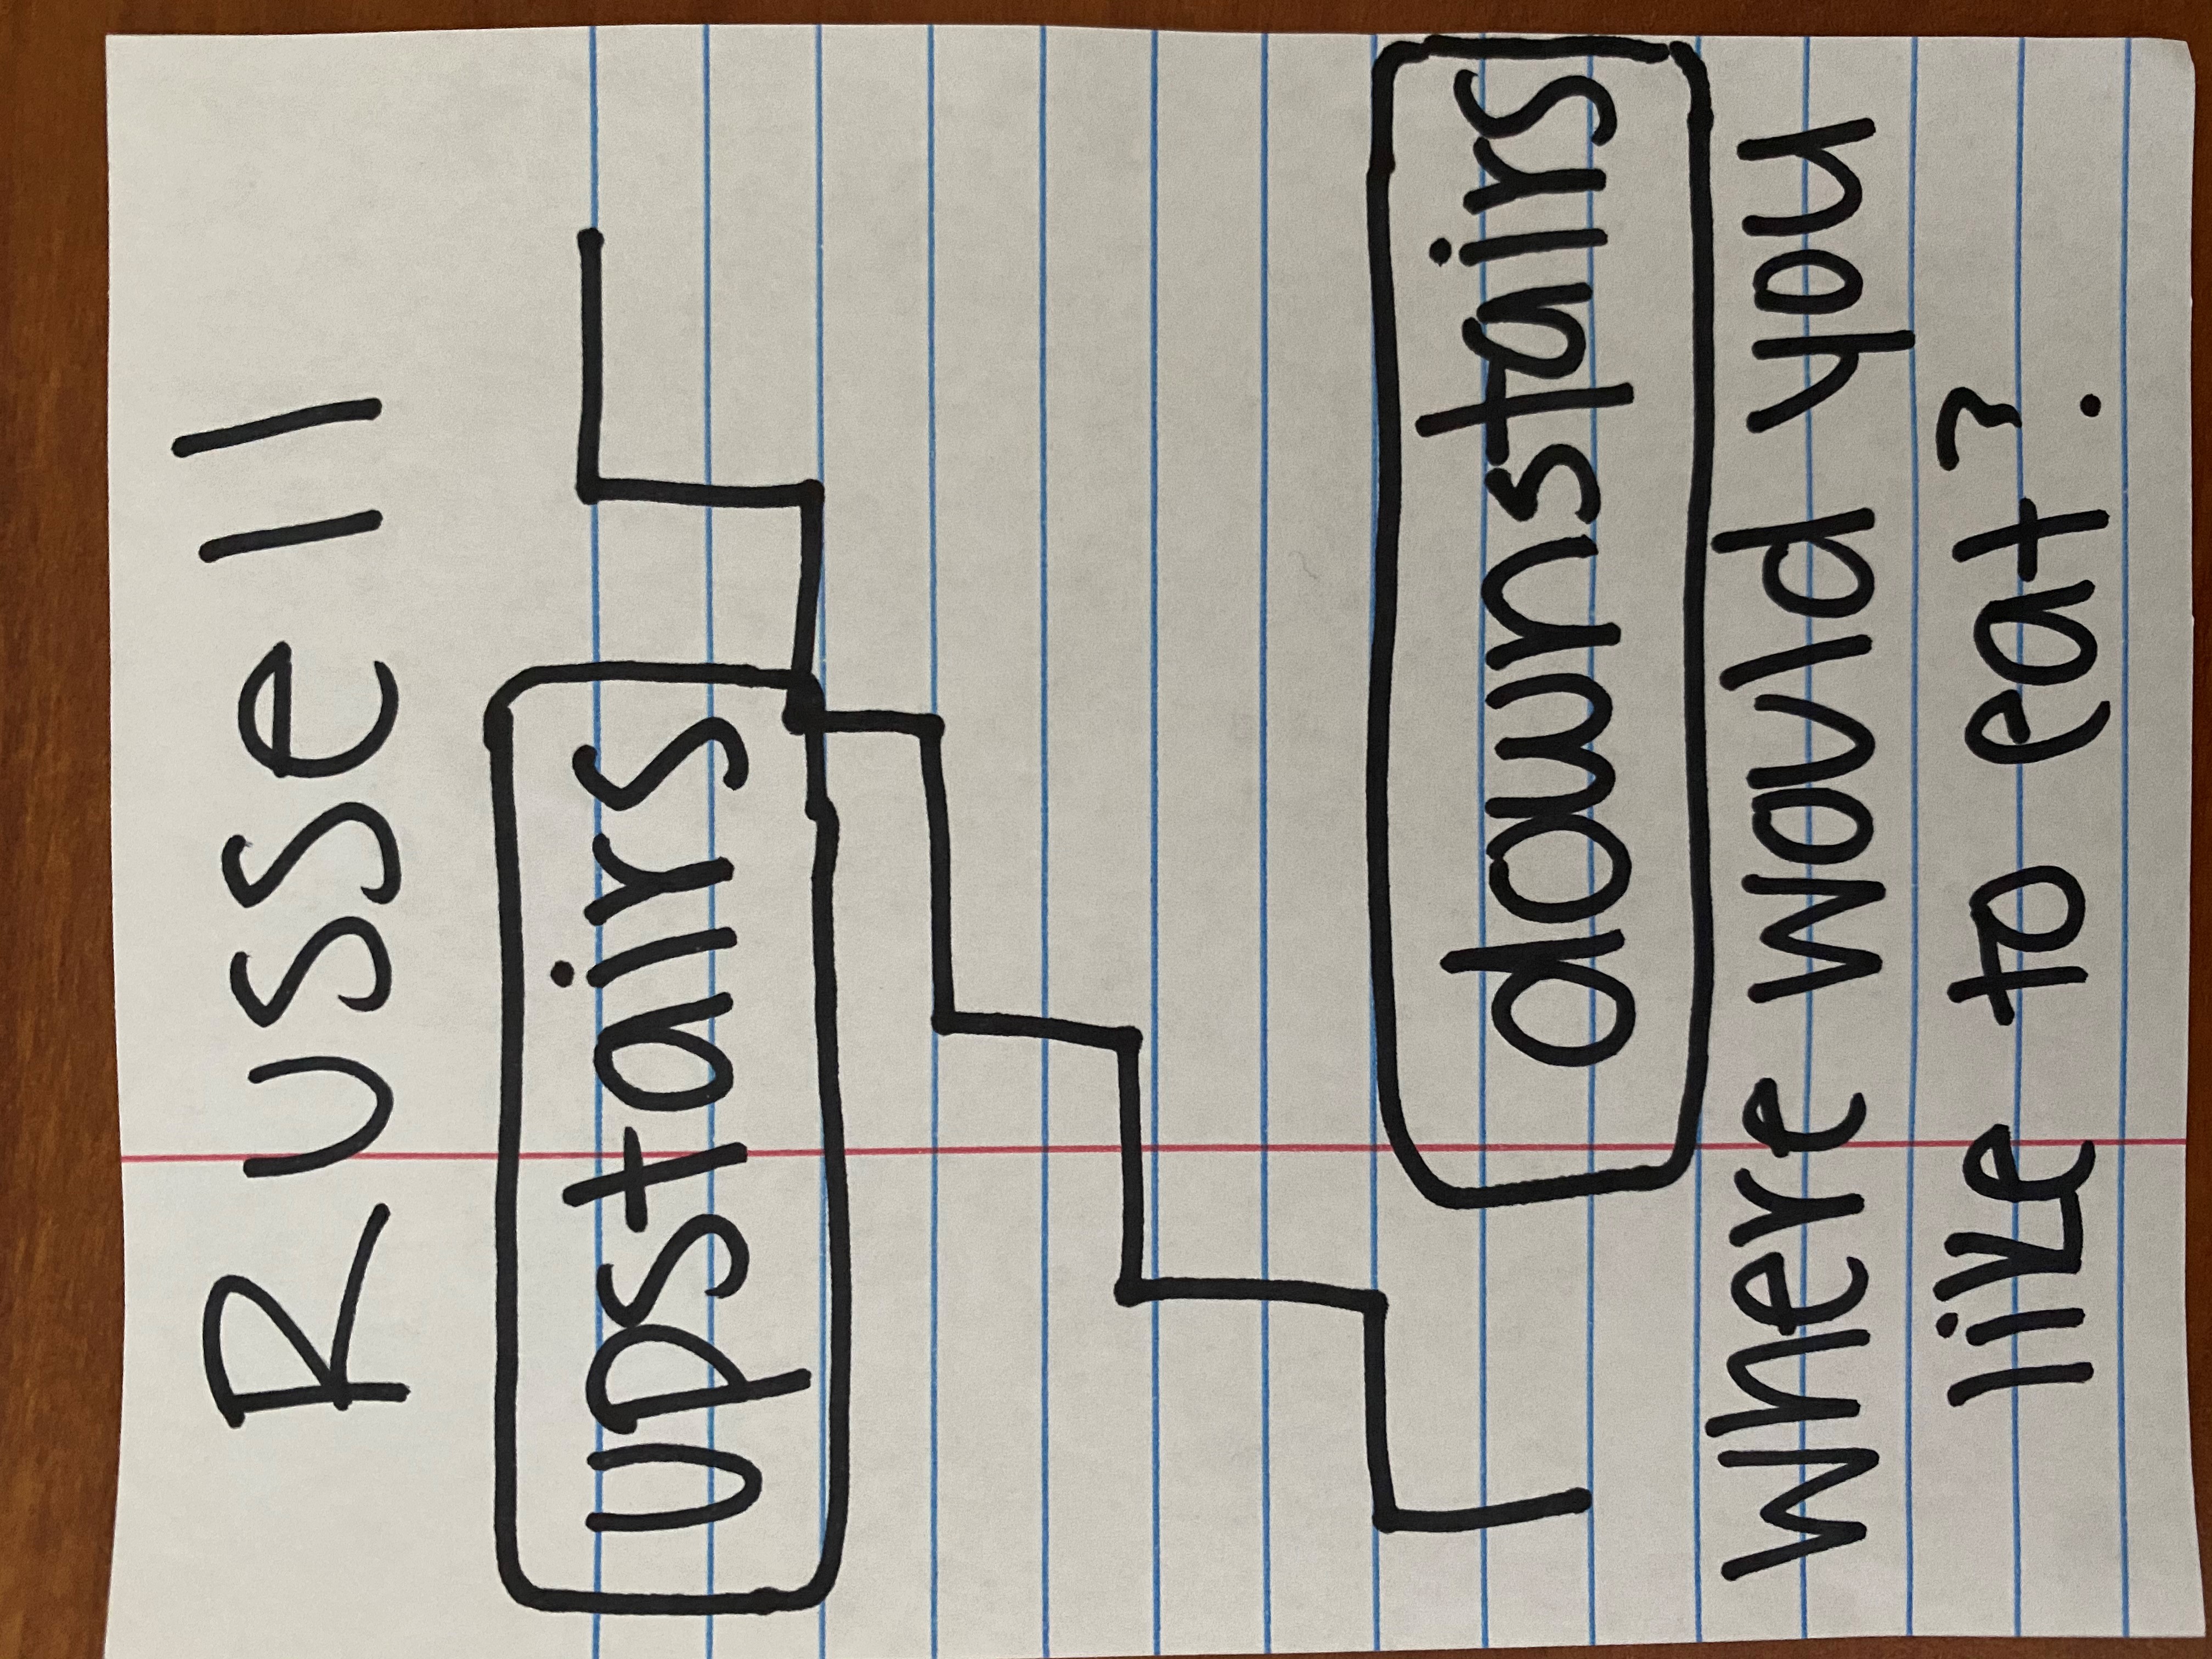 Russell
upstairs
downstairs
where would you
like to eat?